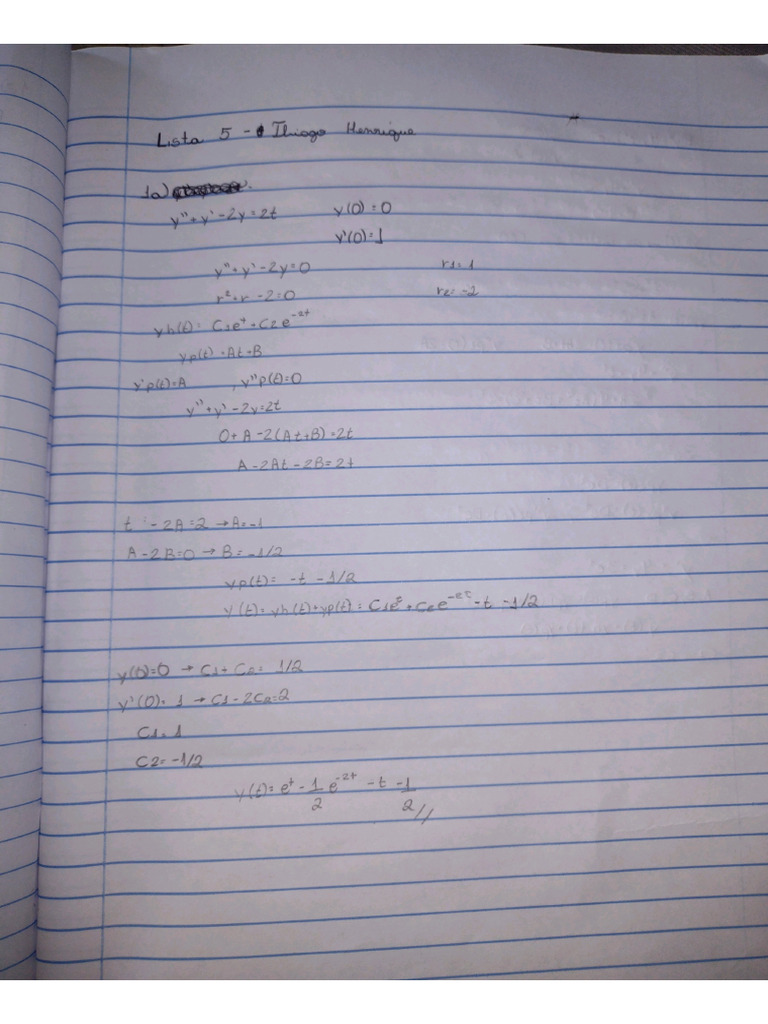 Lista 5 - Thiago Henrique
1a)
y'' + y' - 2y = 2t y(0) = 0
y'(0) = 1
y'' + y' - 2y = 0 r1 = 1
r² + r - 2 = 0 r2 = -2
yh(t) = C1e^t + C2e^-2t
yp(t) = At + B
y'p(t) = A , y''p(t) = 0
y'' + y' - 2y = 2t
0 + A - 2(At + B) = 2t
A - 2At - 2B = 2t
t : -2A = 2 → A = -1
A - 2B = 0 → B = -1/2
yp(t) = -t - 1/2
y(t) = yh(t) + yp(t) = C1e^t + C2e^-2t - t - 1/2
y(0) = 0 → C1 + C2 = 1/2
y'(0) = 1 → C1 - 2C2 = 2
C1 = 1
C2 = -1/2
y(t) = e^t - 1/2 e^-2t - t - 1/2 //